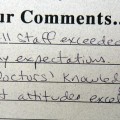 ur Comments..
ll staff exceeded
y expectations.
octors' Knowled
t attitudes excel